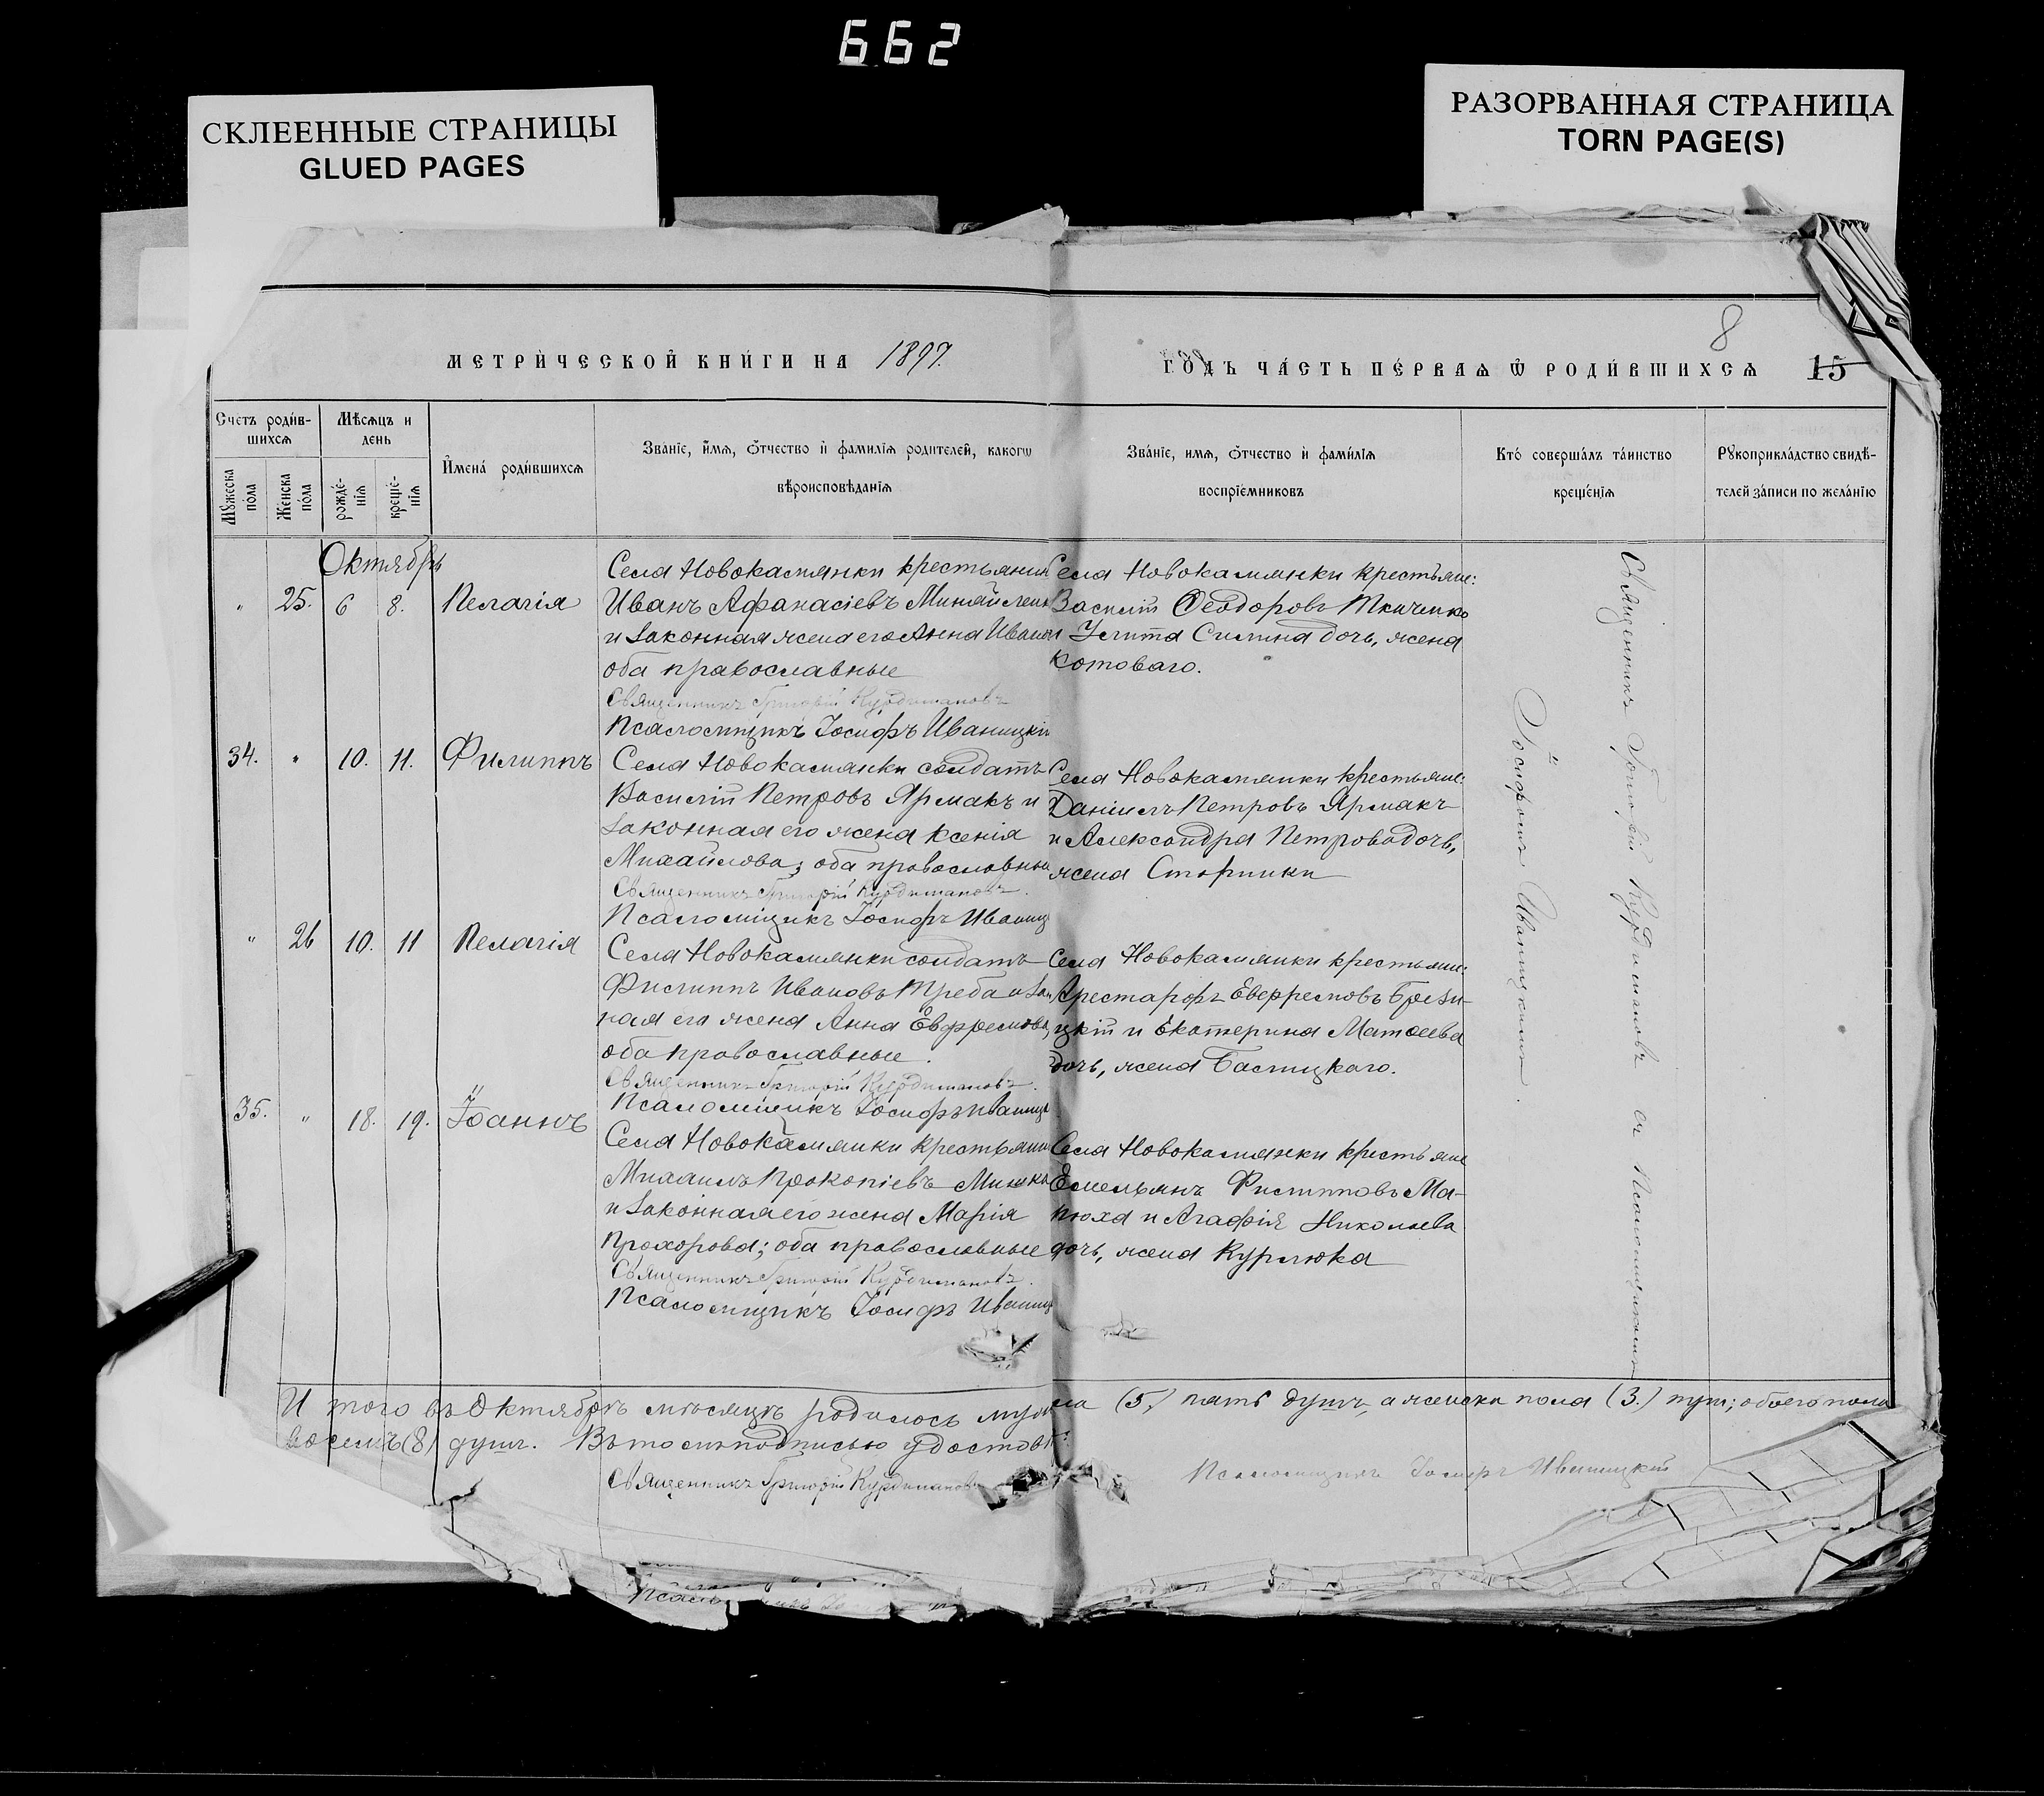 662
СКЛЕЕННЫЕ СТРАНИЦЫ
GLUED PAGES
РАЗОРВАННАЯ СТРАНИЦА
TORN PAGE(S)
8
МЕТРИ́ЧЕСКОЙ КНИ́ГИ НА 1897.
ГО́ДЪ ЧА́СТЬ ПЕ́РВАѦ Ѽ РОДИ́ВШИХСѦ 15
Счетъ роди́в-
шихсѧ
Мѣсѧцъ и
день
Мꙋжеска
по́ла
Же́нска
по́ла
рожде́-
нїѧ
креще́-
нїѧ
И҆мена́ роди́вшихсѧ
Зва́нїе, и҆́мѧ, ѻ҆́тчество и҆ фами́лїѧ родителей, какогѡ
вѣроисповѣ́данїѧ
Зва́нїе, имѧ, ѻ҆́тчество и҆ фами́лїѧ
воспрїе́мниковъ
Кто́ соверша́лъ та́инство
креще́нїѧ
Рꙋкоприкла́дство свидѣ́-
телей за́писи по жела́нїю
Октябрь
" 25. 6 8. Пелагія
Села Новокамянки крестьянин
Иванъ Афанасіевъ Минайленк
и законная жена его Анна Иванов
оба православные
Священникъ Григорій Курдимановъ
Псаломщикъ Іосифъ Иваницкій
Села Новокамянки крестьяне:
Василій Ѳеодоровъ Ткаченко
и Улита Силина дочь, жена
Котоваго.
34. " 10. 11. Филиппъ
Села Новокамянки солдатъ
Василій Петровъ Ярмакъ и
законная его жена Ксенія
Михайлова; оба православные
Священникъ Григорій Курдимановъ.
Псаломщикъ Іосифъ Иваниц
Села Новокамянки крестьяне:
Даніилъ Петровъ Ярмакъ
и Александра Петрова дочь,
жена
" 26 10. 11 Пелагія
Села Новокамянки солдатъ
Филиппъ Ивановъ Треба и зак
ная его жена Анна Евфремова,
оба православные.
Священникъ Григорій Курдимановъ.
Псаломщикъ Іосифъ Иваниц
Села Новокамянки крестьяне:
Арестархъ Евфремовъ Брези-
цкій и Екатерина Матѳеева
дочь, жена Баслицкаго.
35. " 18. 19. Іоаннъ
Села Новокамянки крестьянин
Михаилъ Прокопіевъ
и законная его жена Марія
Прохорова; оба православные
Священникъ Григорій Курдимановъ.
Псаломщикъ Іосифъ Иваниц
Села Новокамянки крестьяне
Емельянъ Филипповъ Ма-
нюха и Агафія Николаева
дочь, жена Курлюка
Священникъ Григорій Курдимановъ съ Псаломщикомъ
Іосифомъ Иваницкимъ.
И того въ Октябрѣ мѣсяцѣ родилось муж пола (5.) пять душъ, а женска пола (3.) три; обоего пола
восемь (8) душъ. Въ томъ подписью удостовѣ
Священникъ Григорій Курдимановъ
Псаломщикъ Іосифъ Иваницкій